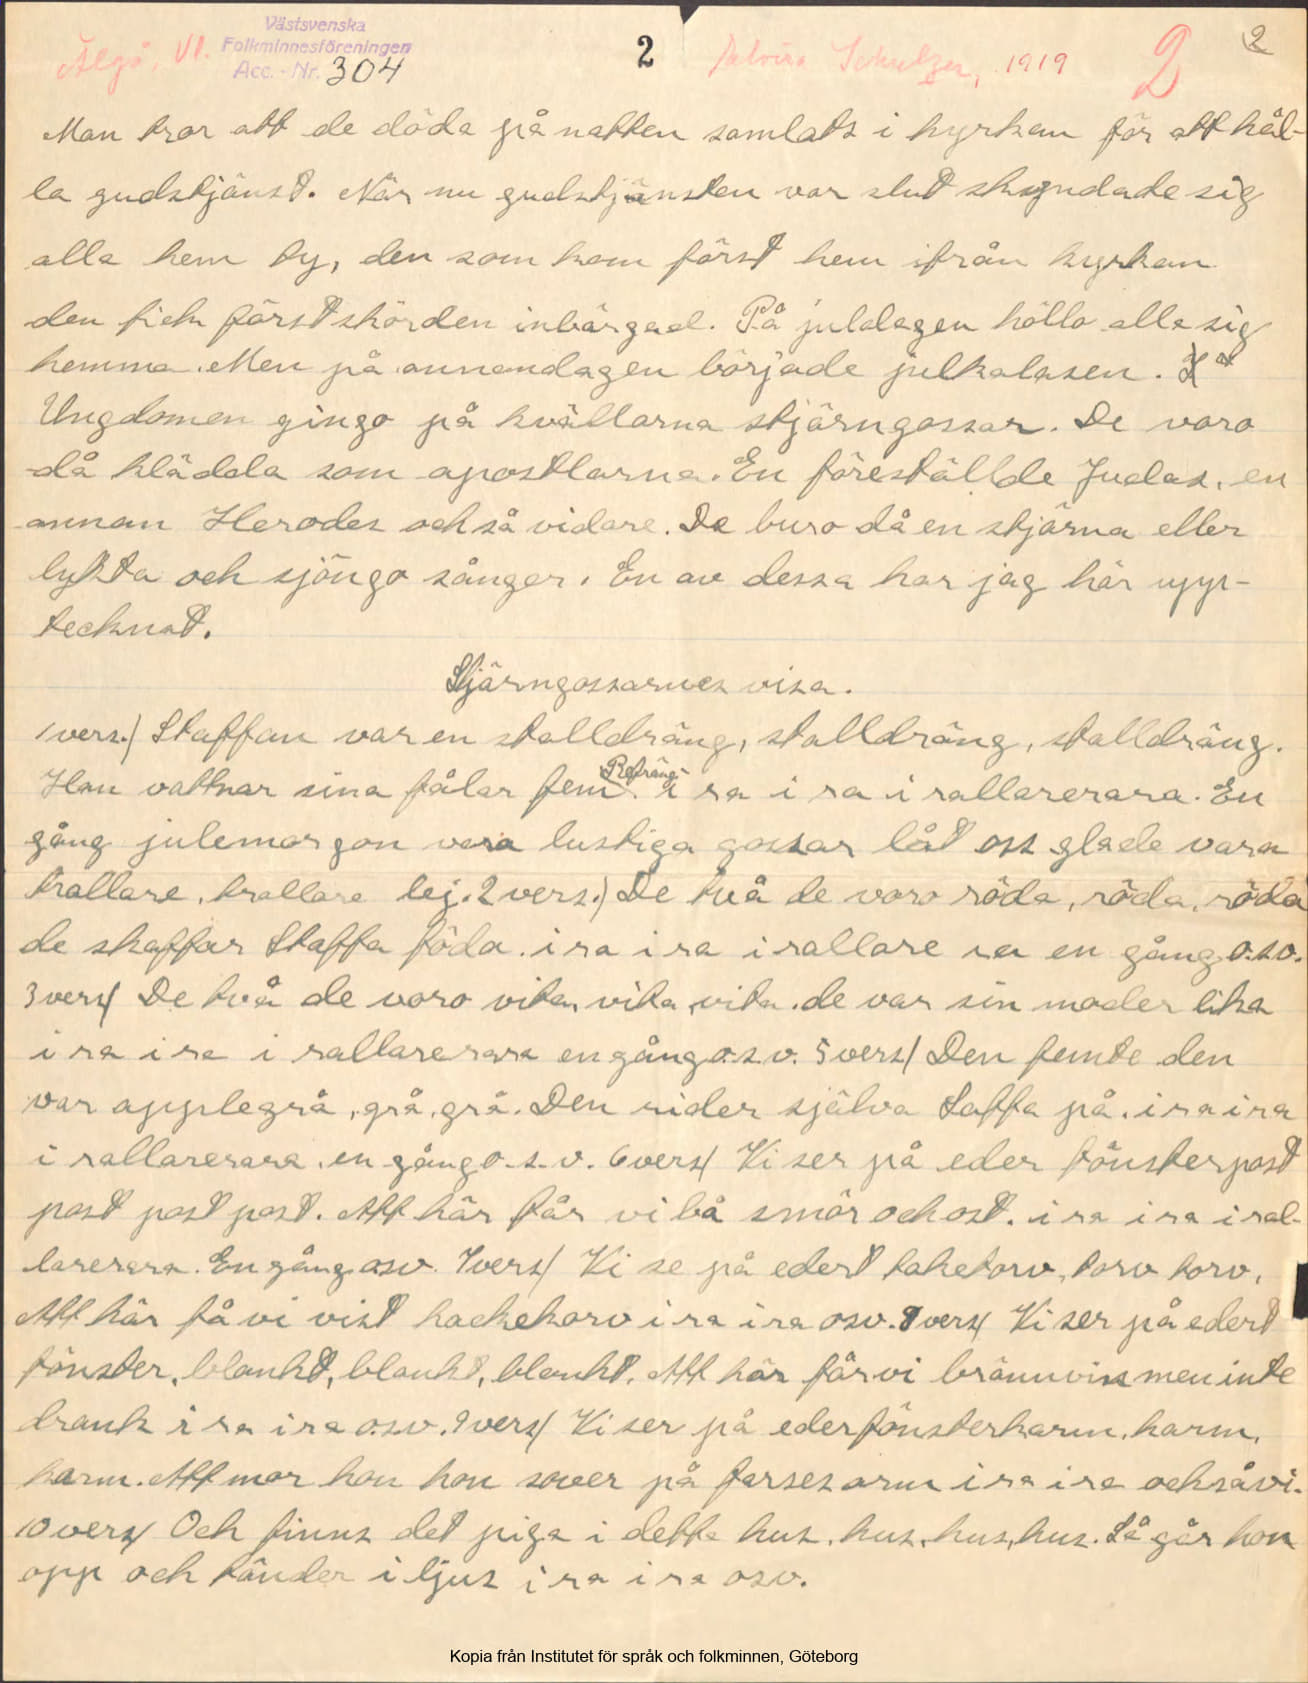 Västsvenska
Folkminnesföreningen
Acc. - Nr. 304
Älgå, Vl.
2
Schulzen, 1919
2
2
Man tror att de döda på natten samlats i kyrkan för att hål-
la gudstjänst. När nu gudstjänsten var slut skyndade sig
alla hem ty, den som kom först hem ifrån kyrkan
den fick först skörden inbärgad. På juldagen höllo alla sig
hemma. Men på annandagen började julkalasen.
Ungdomen gingo på kvällarna stjärngossar. De voro
då klädda som apostlarna. En föreställde Judas, en
annan Herodes och så vidare. De buro då en stjärna eller
lykta och sjöngo sånger. En av dessa har jag här upp-
tecknat.
Stjärngossarnes visa.
1 vers.) Staffan var en stalldräng, stalldräng, stalldräng.
Han vattnar sina fålar fem. Refräng i ra i ra i rallarerara. En
gång julemorgon vera lustiga gossar låt oss glade vara
trallare, trallare lej. 2 vers.) De två de voro röda, röda, röda
de skaffar Staffa föda. i ra i ra i rallare ra en gång o.s.v.
3 vers) De två de voro vita, vita, vita. de var sin moder lika
i ra i ra i rallarerara en gång o.s.v. 5 vers) Den femte den
var applegrå, grå, grå. Den rider själva Saffa på. i ra i ra
i rallarerara. en gång o.s.v. 6 vers) Vi ser på eder fönsterpost
post post post. Att här får vi bå smör och ost. i ra i ra i ral-
larerara. En gång osv. 7 vers) Vi se på edert taketorv, torv torv,
Att här få vi vist hackekorv i ra i ra osv. 8 vers) Vi ser på edert
fönster, blankt, blankt, blankt. Att här får vi brännvin men inte
drank i ra i ra o.s.v. 9 vers) Vi ser på eder fönsterkarm, karm,
karm. Att mor hon hon sover på farses arm i ra i ra och så vi.
10 vers) Och finns det piga i detta hus, hus, hus, hus. Så går hon
opp och tänder i ljus i ra i ra osv.
Kopia från Institutet för språk och folkminnen, Göteborg